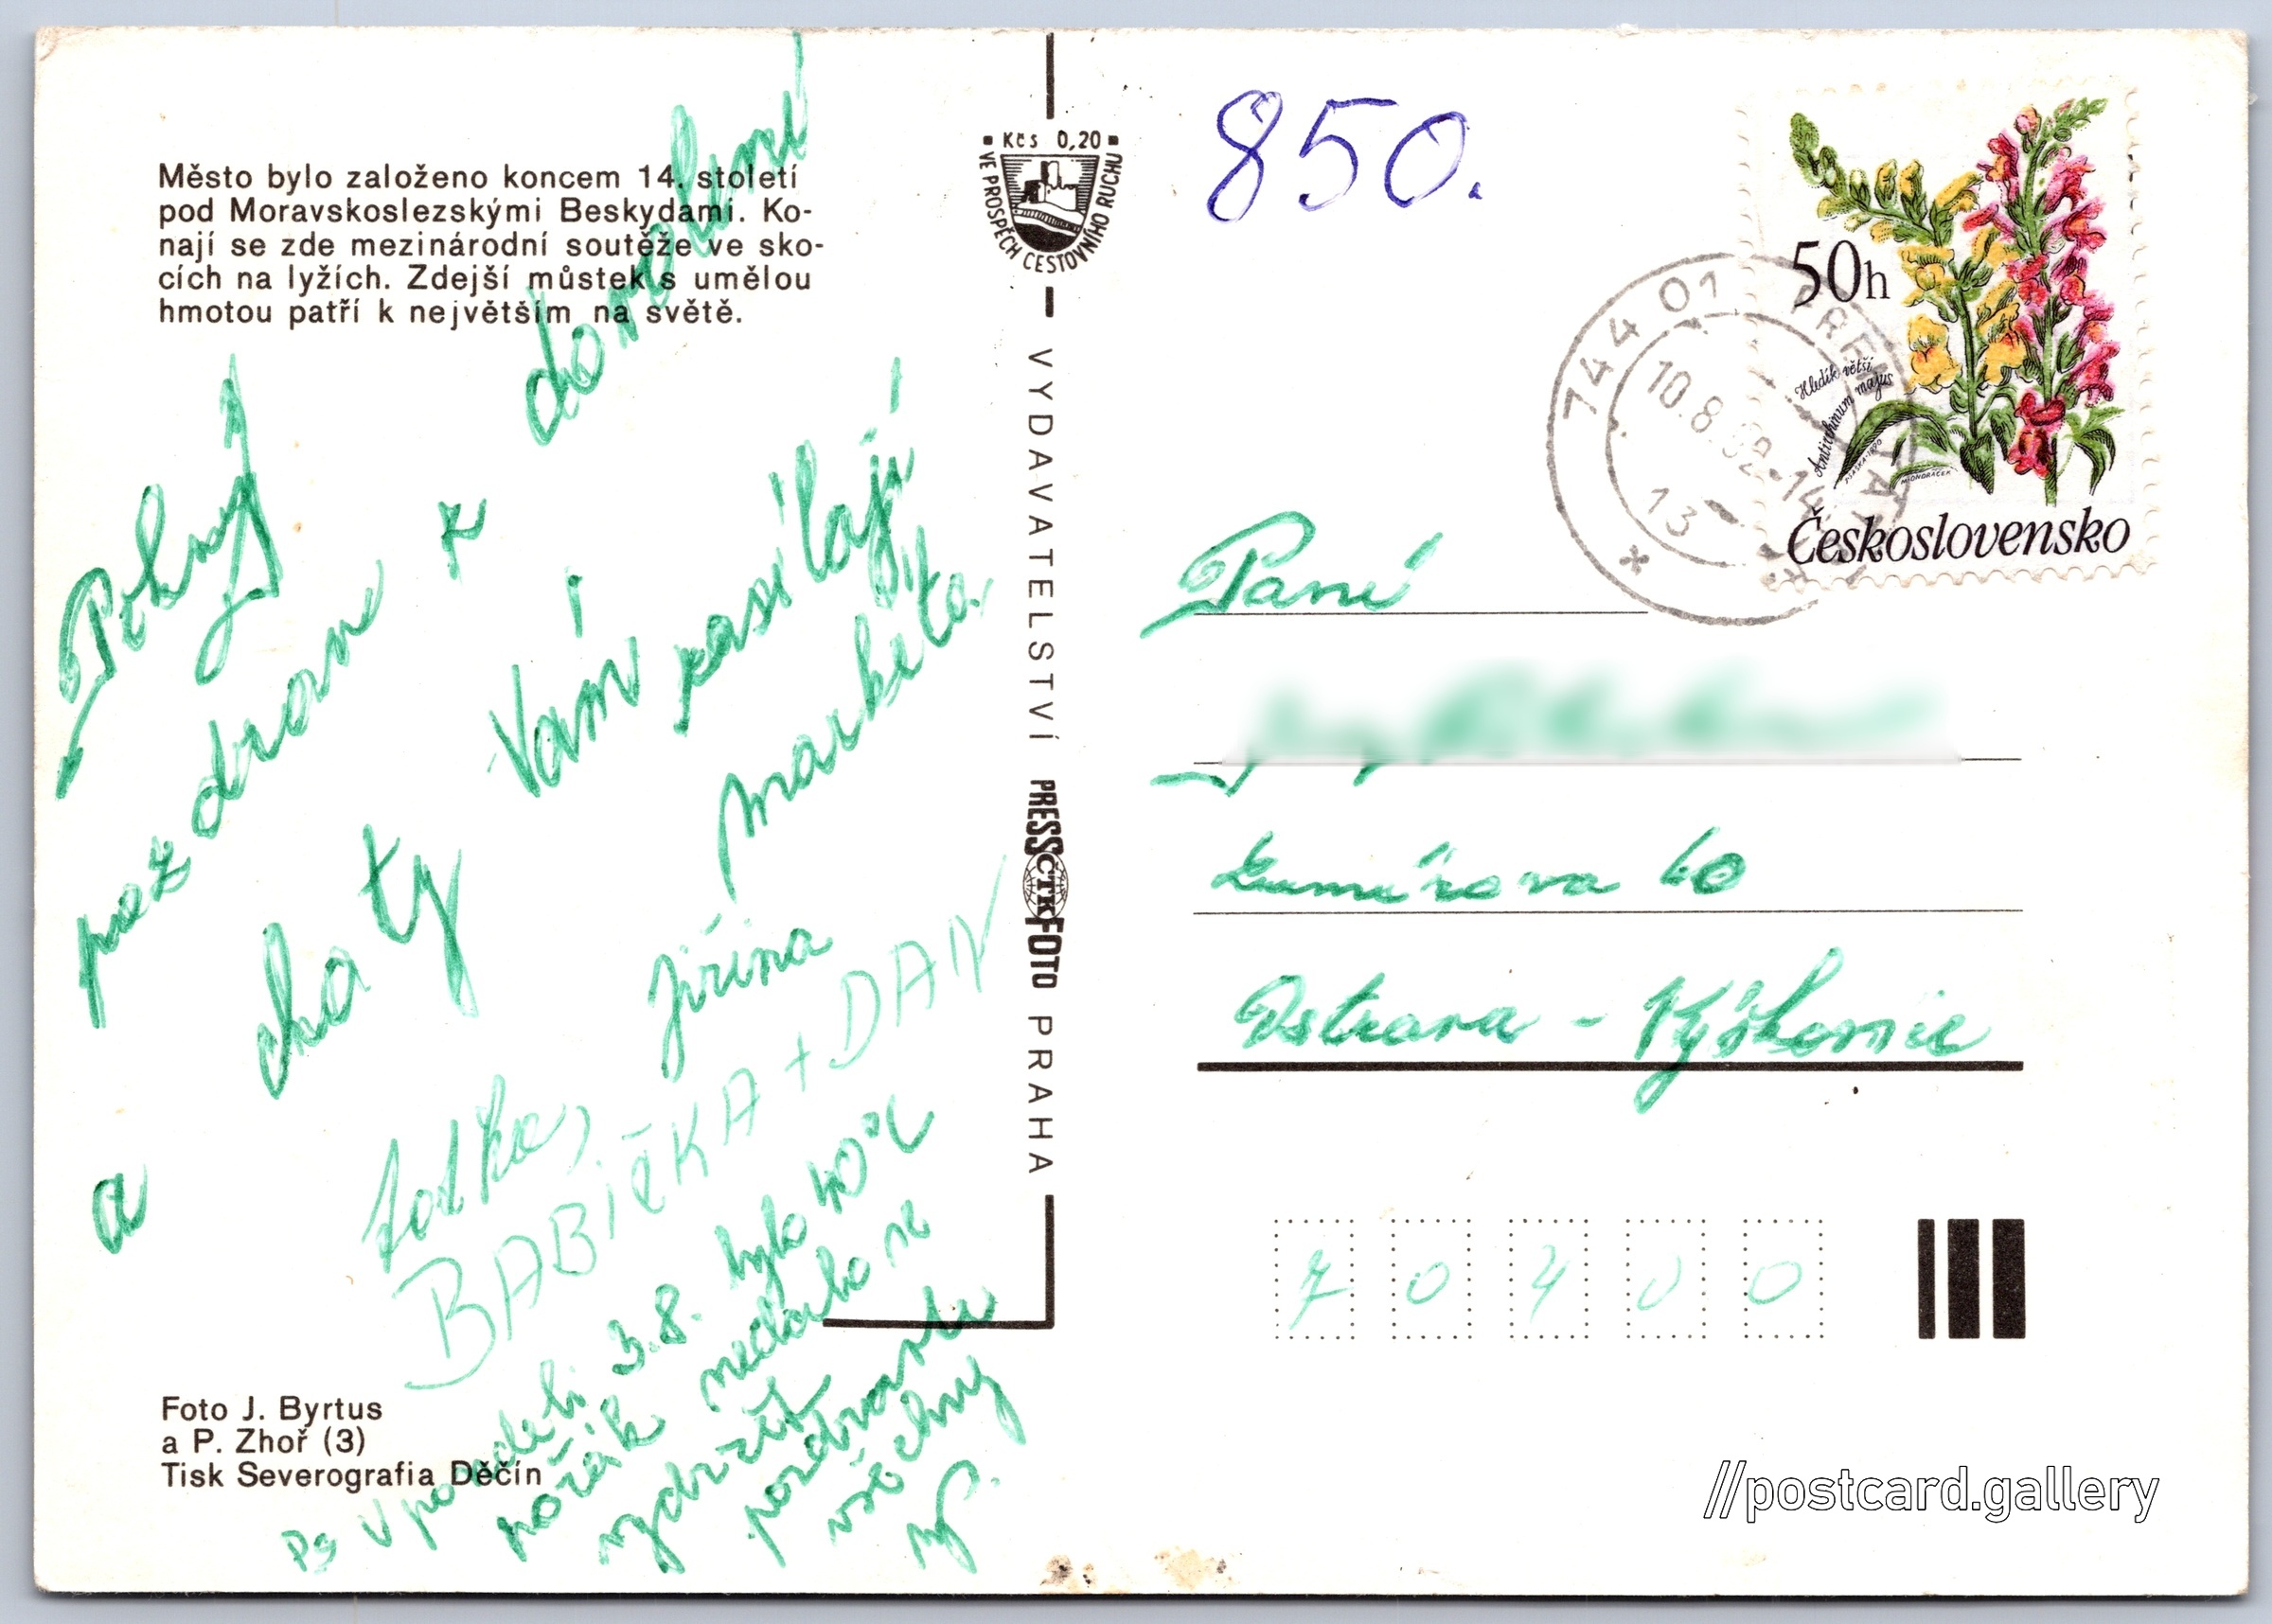 Město bylo založeno koncem 14. století
pod Moravskoslezskými Beskydami. Ko-
nají se zde mezinárodní soutěže ve sko-
cích na lyžích. Zdejší můstek s umělou
hmotou patří k největším na světě.
Pěkný
pozdrav z dovolení
a chaty Vám zasílají
Jiřina Markéta.
BABIČKA + DAN
PS V pondělí 3.8. bylo 40°C
nedalo se
vydržet
všechny
Foto J. Byrtus
a P. Zhoř (3)
Tisk Severografia Děčín
Kčs 0,20
VE PROSPĚCH CESTOVNÍHO RUCHU
VYDAVATELSTVÍ PRESSFOTO PRAHA
ČTK
850.
50h
Hledík větší
Antirrhinum majus
Československo
744 01
10.8.92-14
13
Paní
Lumírova 60
Ostrava - Výškovice
70400
//postcard.gallery